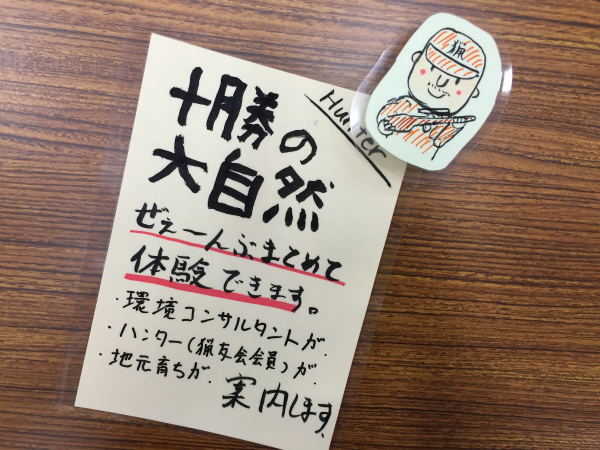 十勝の
大自然
Hunter
猟
ぜぇ〜んぶまとめて
体験できます。
・環境コンサルタントが、
・ハンター(猟友会会員)が、
・地元育ちが、
案内します、